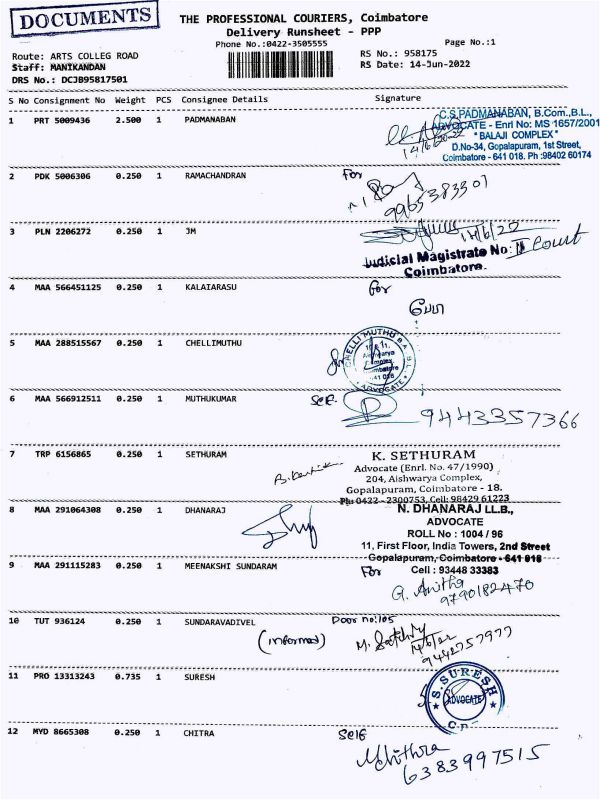 DOCUMENTS
THE PROFESSIONAL COURIERS, Coimbatore
Delivery Runsheet - PPP
Phone No.:0422-3505555
Page No.:1
Route: ARTS COLLEG ROAD
RS No.: 958175
Staff: MANIKANDAN
RS Date: 14-Jun-2022
DRS No.: DCJB95817501
S No Consignment No Weight PCS Consignee Details Signature
1 PRT 5009436 2.500 1 PADMANABAN
C.S.PADMANABAN, B.Com.,B.L.,
ADVOCATE - Enrl No: MS 1657/2001
" BALAJI COMPLEX "
D.No-34, Gopalapuram, 1st Street,
Coimbatore - 641 018. Ph :98402 60174
14/6/2022
2 PDK 5006306 0.250 1 RAMACHANDRAN
For
9965383301
3 PLN 2206272 0.250 1 JM
14/6/22
Judicial Magistrate No: II Court
Coimbatore.
4 MAA 566451125 0.250 1 KALAIARASU
for
5 MAA 288515567 0.250 1 CHELLIMUTHU
for
CHELLI MUTHU B.A. B.L.
10 & 11,
Aishwarya
Complex
Coimbatore
641 018
ADVOCATE
6 MAA 566912511 0.250 1 MUTHUKUMAR
Self
9443357366
7 TRP 6156865 0.250 1 SETHURAM
K. SETHURAM
Advocate (Enrl. No. 47/1990)
204, Aishwarya Complex,
Gopalapuram, Coimbatore - 18.
Ph: 0422 - 2300753, Cell: 98429 61223
8 MAA 291064308 0.250 1 DHANARAJ
N. DHANARAJ LL.B.,
ADVOCATE
ROLL No : 1004 / 96
11, First Floor, India Towers, 2nd Street
Gopalapuram, Coimbatore - 641 018
Cell : 93448 33383
9 MAA 291115283 0.250 1 MEENAKSHI SUNDARAM
For
G. Anitha
9790182470
10 TUT 936124 0.250 1 SUNDARAVADIVEL
Door no:105
(informed)
14/6/22
9442757977
11 PRO 13313243 0.735 1 SURESH
S. SURESH
ADVOCATE
12 MYD 8665308 0.250 1 CHITRA
Self
Chithra
6383997515